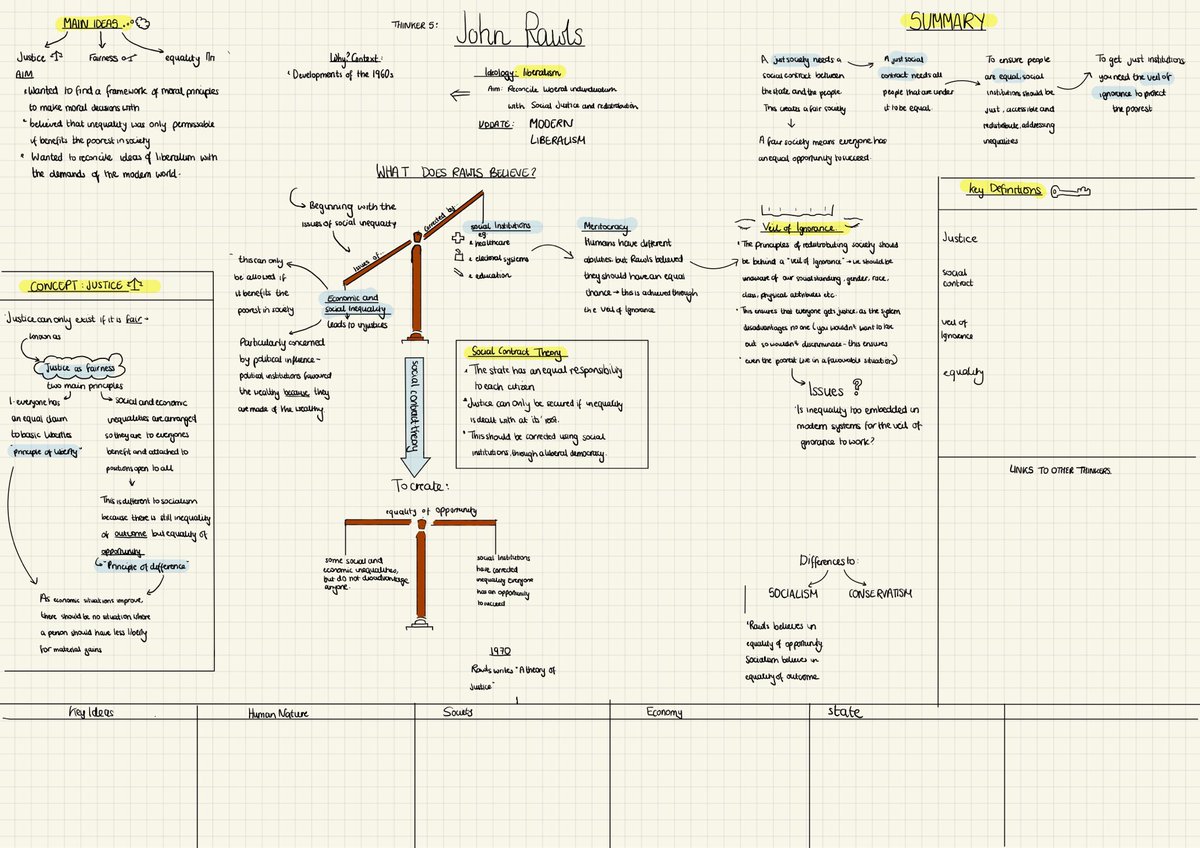 MAIN IDEAS...
Justice
Fairness
equality
AIM
Wanted to find a framework of moral principles
to make moral decisions with
believed that inequality was only permissable
if benefits the poorest in society
Wanted to reconcile ideas of liberalism with
the demands of the modern world.
THINKER 5:
John Rawls
Why? Context:
Developments of the 1960s
Ideology: liberalism
Aim: Reconcile liberal individualism
with Social Justice and redistribution
UPDATE: MODERN
LIBERALISM
SUMMARY
A just society needs a
social contract between
the state and the people.
This creates a fair society
A fair society means everyone has
an equal opportunity to succeed.
A just social
contract needs all
people that are under
it to be equal.
To ensure people
are equal, social
institutions should be
just, accessible and
redistribute, addressing
inequalities
To get just institutions
you need the veil of
ignorance to protect
the poorest
WHAT DOES RAWLS BELIEVE?
Beginning with the
issues of social inequality
issues of
corrected by:
this can only
be allowed if
it benefits the
poorest in society
Economic and
social inequality
leads to injustices
Particularly concerned
by political influence -
political institutions favoured
the wealthy because they
are made of the wealthy
social Institutions
eg
healthcare
electoral systems
education
Meritocracy
Humans have different
abilities, but Rawls believed
they should have an equal
chance → this is achieved through
the Veil of Ignorance
Veil of Ignorance.
The principles of redistributing society should
be behind a "veil of ignorance" → we should be
unaware of our social standing, gender, race,
class, physical attributes etc.
This ensures that everyone gets justice, as the system
disadvantages no one (you wouldn't want to lose
out so wouldn't discriminate - this ensures
even the poorest live in a favourable situation)
Issues ?
Is inequality too embedded in
modern systems for the veil of
ignorance to work?
social contract theory
Social Contract Theory
The state has an equal responsibility
to each citizen
Justice can only be secured if inequality
is dealt with at its' root.
This should be corrected using social
institutions, through a liberal democracy.
To create:
equality of opportunity
some social and
economic inequalities,
but do not disadvantage
anyone.
social institutions
have corrected
inequality everyone
has an opportunity
to succeed
1970
Rawls writes "A theory of
Justice"
CONCEPT: JUSTICE
Justice can only exist if it is fair -
known as
Justice as fairness
two main principles
1. everyone has
an equal claim
to basic liberties
"principle of liberty"
social and economic
inequalities are arranged
so they are to everyones
benefit and attached to
positions open to all
This is different to socialism
because there is still inequality
of outcome but equality of
opportunity
"Principle of difference"
As economic situations improve,
there should be no situation where
a person should have less liberty
for material gains
Key Definitions
Justice
social
contract
veil of
ignorance
equality
LINKS TO OTHER THINKERS.
Differences to:
SOCIALISM
CONSERVATISM
Rawls believes in
equality of opportunity
Socialism believes in
equality of outcome
Key Ideas
Human Nature
Society
Economy
State